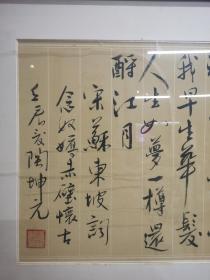 我早生華髮
人生如夢一樽還
酹江月
宋蘇東坡詞
念奴嬌赤壁懷古
陶坤元